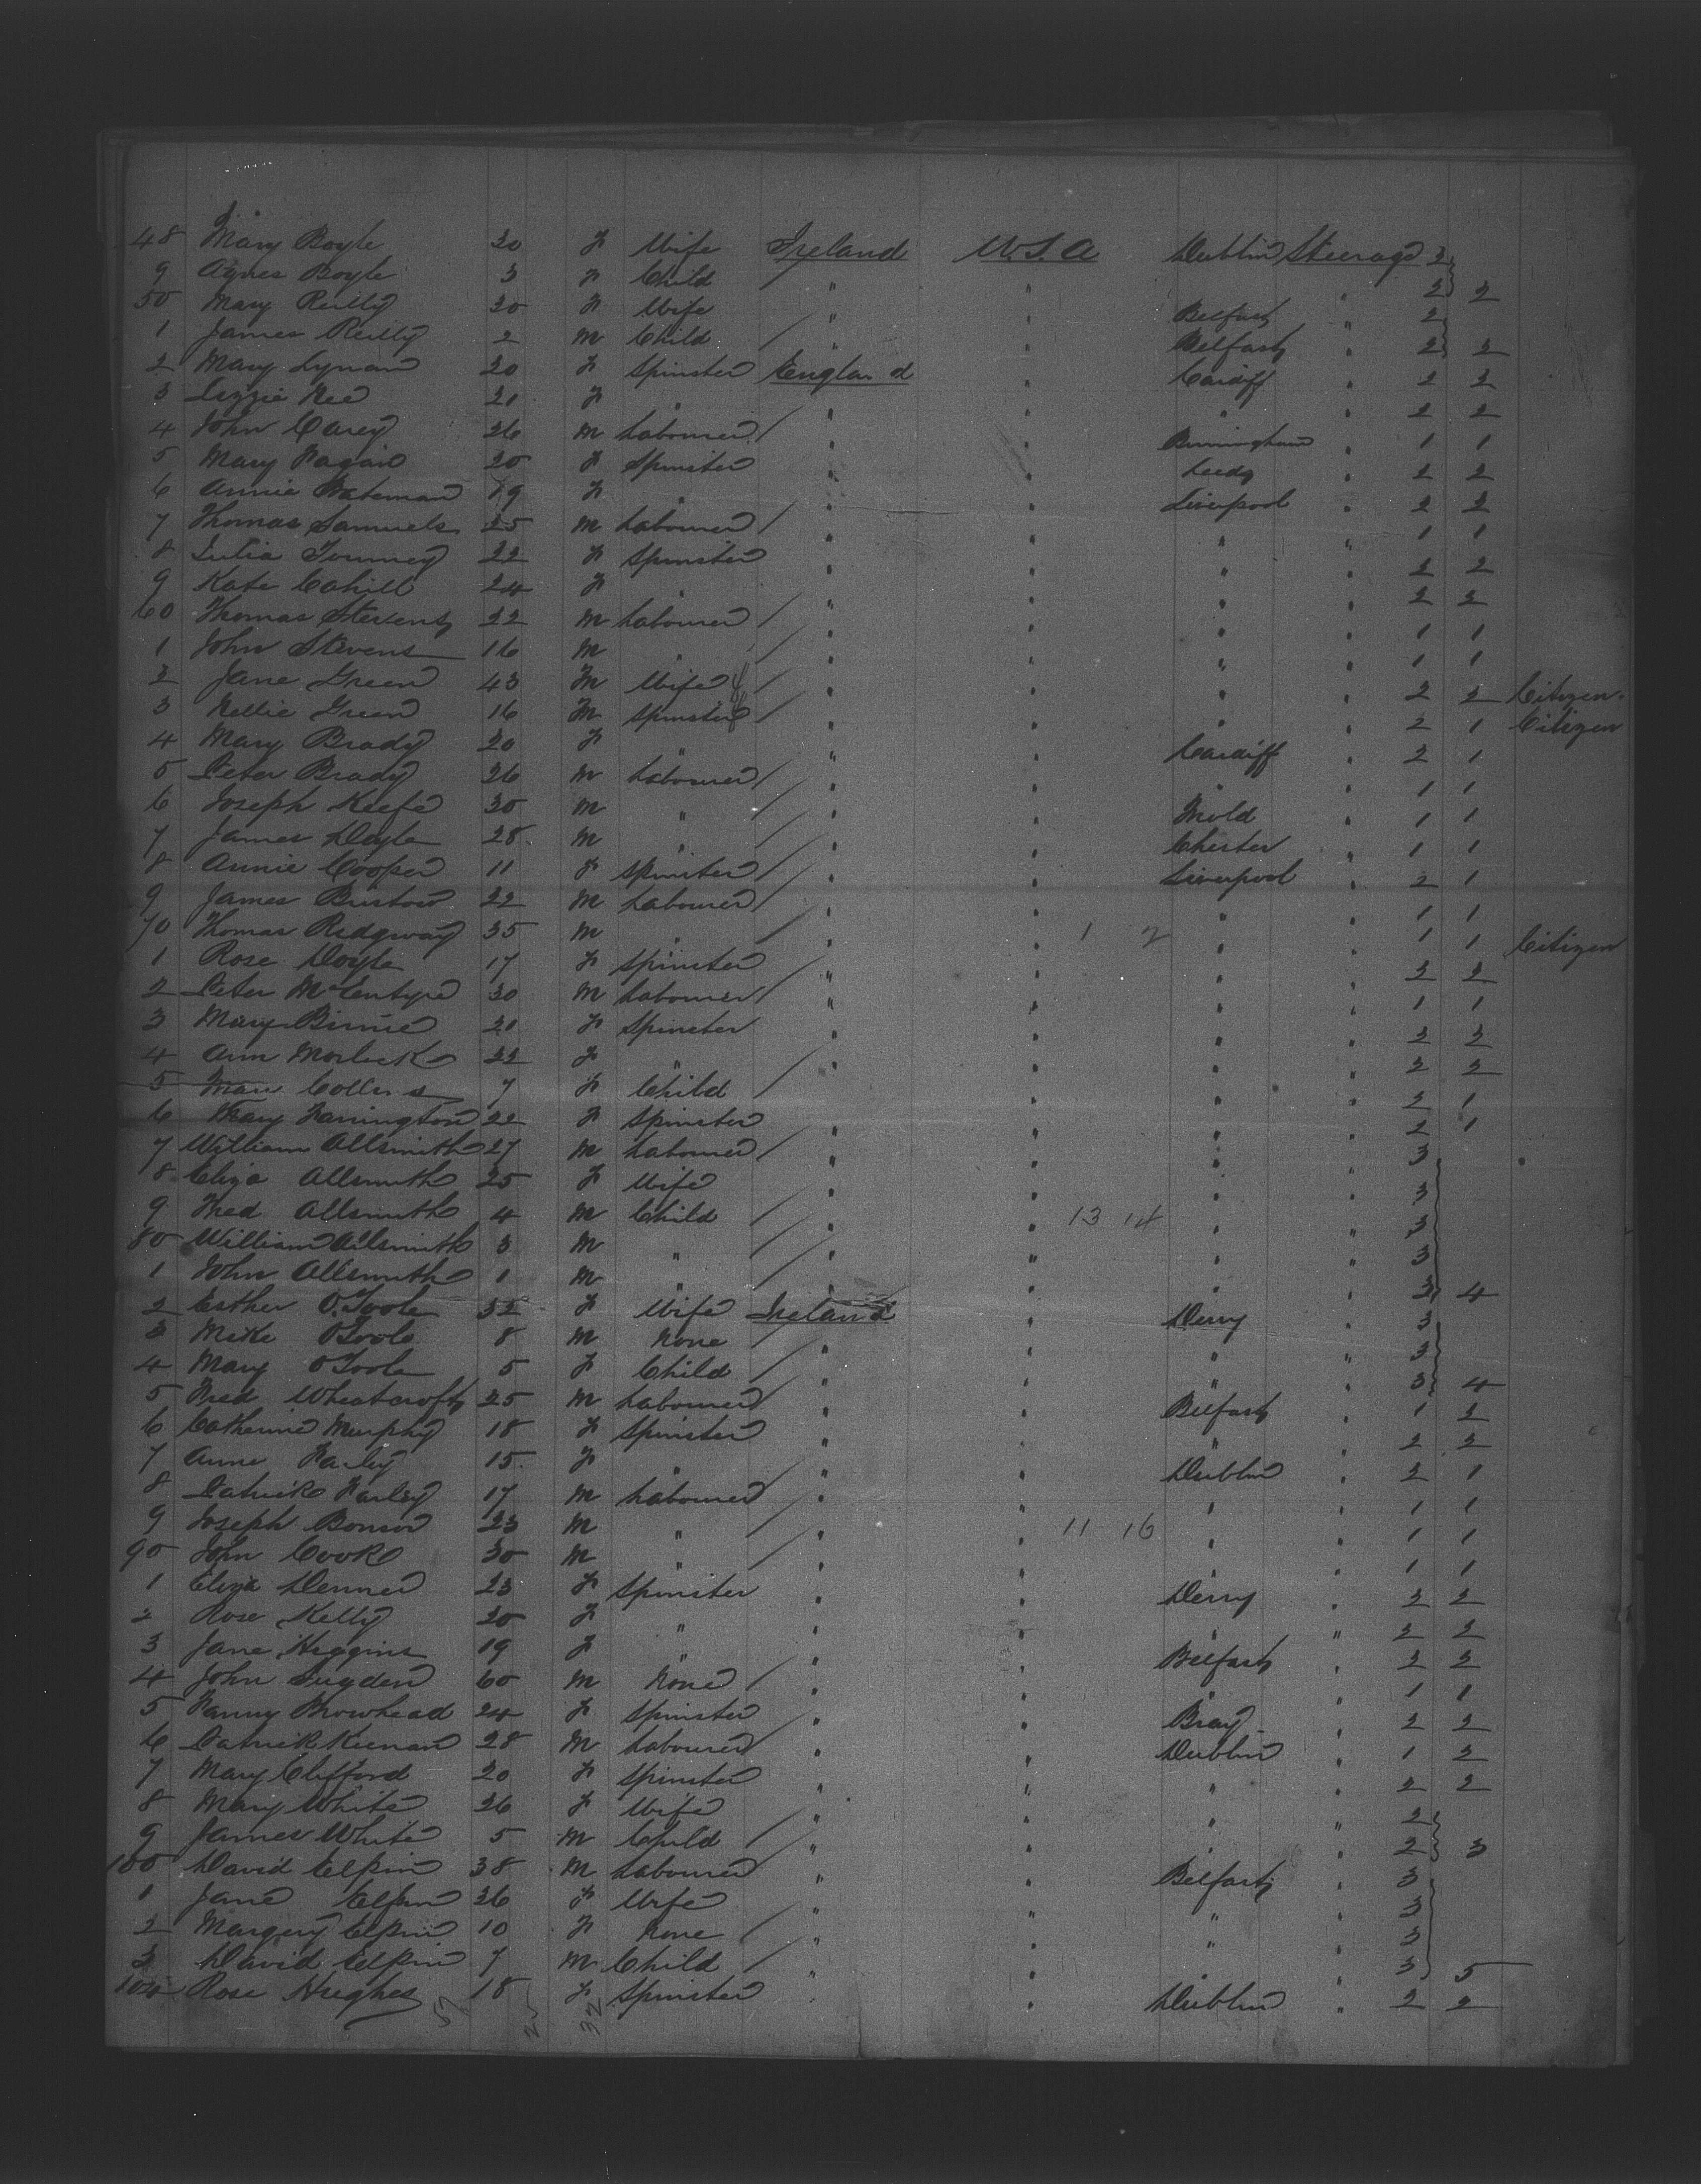 48 Mary Boyle 30 F Wife Ireland U.S.A Dublin Steerage 2
9 Agnes Boyle 3 F Child " " " 2 2
50 Mary Reilly 30 F Wife " " Belfast " 2
1 James Reilly 2 M Child " " Belfast " 2 2
2 Mary Lynan 20 F Spinster England " Cardiff " 2 2
3 Lizzie Nee 21 F " " " " " 2 2
4 John Carey 26 M Labourer " " Birmingham " 1 1
5 Mary 20 F Spinster " " Leeds " 2 2
6 Annie Bateman 19 F " " " Liverpool " 2 2
7 Thomas Samuels 25 M Labourer " " " " 1 1
8 Julia 22 F Spinster " " " " 2 2
9 Kate Cahill 24 F " " " " " 2 2
60 Thomas Stevens 22 M Labourer " " " " 1 1
1 John Stevens 16 M " " " " " 1 1
2 Jane Green 43 M Wife f " " " " 2 2 Citizen.
3 Nellie Green 16 M Spinster f " " " " 2 1 Citizen
4 Mary Brady 20 F " " " Cardiff " 2 1
5 Peter Brady 26 M Labourer " " " " 1 1
6 Joseph Keefe 30 M " " " Mold " 1 1
7 James Doyle 28 M " " " Chester " 1 1
8 Annie Cooper 11 F Spinster " " Liverpool " 2 1
9 James Bristow 22 M Labourer " " " " 1 1
70 Thomas Ridgway 35 M " " " 1 2 " " 1 1 Citizen
1 Rose Doyle 17 F Spinster " " " " 2 2
2 Peter McEntyre 30 M Labourer " " " " 1 1
3 Mary Binnie 21 F Spinster " " " " 2 2
4 Ann 22 F " " " " " 2 2
5 Mary Collins 7 F Child " " " 2 1
6 Mary Farrington 22 F Spinster " " " " 2 1
7 William Allsmith 27 M Labourer " " " " 3
8 Eliza Allsmith 25 F Wife " " " " 3
9 Fred Allsmith 4 M Child " " 13 14 " " 3
80 William Allsmith 3 M " " " " " 3
1 John Allsmith 1 M " " " " " 3 4
2 Esther O'Toole 32 F Wife Ireland " Derry " 3
3 Mike O'Toole 8 M None " " " " 3
4 Mary O'Toole 5 F Child " " " " 3 4
5 Fred Wheatcroft 25 M Labourer " " Belfast " 1 2
6 Catherine Murphy 18 F Spinster " " " " 2 2
7 Anne Farley 15 F " " " Dublin " 2 1
8 Patrick Farley 17 M Labourer " " " " 1 1
9 Joseph Bonsor 23 M " " " 11 16 " " 1 1
90 John Cook 30 M " " " " " 1 1
1 Eliza Denner 23 F Spinster " " Derry " 2 2
2 Rose Kelly 20 F " " " " " 2 2
3 Jane Higgins 19 F " " " Belfast " 2 2
4 John Sugden 60 M None " " " " 1 1
5 Fanny Browhead 24 F Spinster " " Bray " 2 2
6 Patrick Keenan 28 M Labourer " " Dublin " 1 2
7 Mary Clifford 20 F Spinster " " " " 2 2
8 Mary White 26 F Wife " " " " 2
9 James White 5 M Child " " " " 2 3
100 David Elpin 38 M Labourer " " Belfast " 3
1 Jane Elpin 36 F Wife " " " " 3
2 Margery Elpin 10 F None " " " " 3
3 David Elpin 7 M Child " " " " 3 5
104 Rose Hughes 18 F Spinster " " Dublin " 2 2
57 25 32